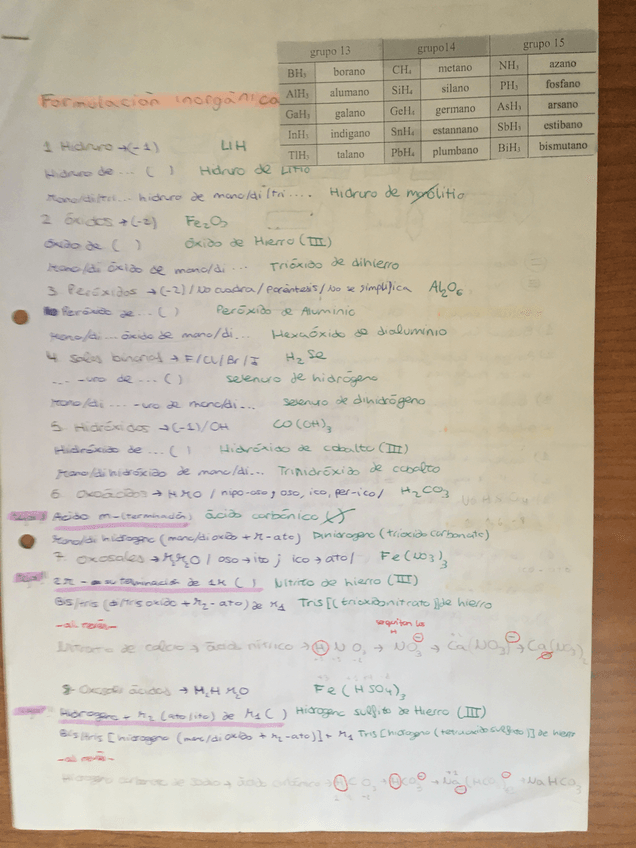 grupo 13 grupo14 grupo 15
BH₃ borano CH₄ metano NH₃ azano
AlH₃ alumano SiH₄ silano PH₃ fosfano
GaH₃ galano GeH₄ germano AsH₃ arsano
InH₃ indigano SnH₄ estannano SbH₃ estibano
TlH₃ talano PbH₄ plumbano BiH₃ bismutano
Formulación inorgánica
1 Hidruro →(-1) LIH
Hidruro de ... ( ) Hidruro de Litio
Mono/di/tri... hidruro de mono/di/tri.... Hidruro de monolitio
2 óxidos →(-2) Fe₂O₃
óxido de ( ) óxido de Hierro (III)
Mono/di óxido de mono/di... Trióxido de dihierro
3 Peróxidos →(-2) / No cuadra / paréntesis / No se simplifica Al₂O₆
Peróxido de...( ) Peróxido de Aluminio
Mono/di...óxido de mono/di... Hexaóxido de dialuminio
4 Sales binarias → F/Cl/Br/I H₂Se
... -uro de ... ( ) selenuro de hidrógeno
Mono/di... -uro de mono/di... selenuro de dihidrógeno
5 Hidróxidos →(-1)/OH CO(OH)₃
Hidróxido de ...( ) Hidróxido de cobalto (III)
Mono/dihidróxido de mono/di... Trihidróxido de cobalto
6 Oxoácidos → HMO / hipo-oso, oso, ico, per-ico/ H₂CO₃
Ácido m-(terminación) ácido carbónico
Mono/di hidrogeno (mono/di oxido + M-ato) Dihidrogeno (trioxido carbonato)
7. Oxosales → M₁M₂O / oso→ito ; ico→ato/ Fe(NO₃)₃
terminación de 1M ( ) Nitrito de hierro (III)
Bis/tris (di/tris oxido + M₂-ato) de M₁ Tris[(trioxidonitrato)] de hierro
-al revés- se quitan la H
Nitrato de calcio → ácido nítrico → HNO₃ → NO₃⁻ → Ca(NO₃)⁻ → Ca(NO₃)₂
8 Oxosales ácidas → M₁H M₂O Fe(HSO₄)₃
Hidrogeno + M₂ (ato/ito) de M₁ ( ) Hidrogeno sulfito de Hierro (III)
Bis/tris [hidrogeno (mono/di oxido + M₂-ato)] + M₁ Tris [hidrogeno (tetraoxidosulfato)] de hierro
-al revés-
Hidrogeno carbonato de sodio → ácido carbónico → H₂CO₃ → HCO₃⁻ → Na(HCO₃)⁻ → NaHCO₃